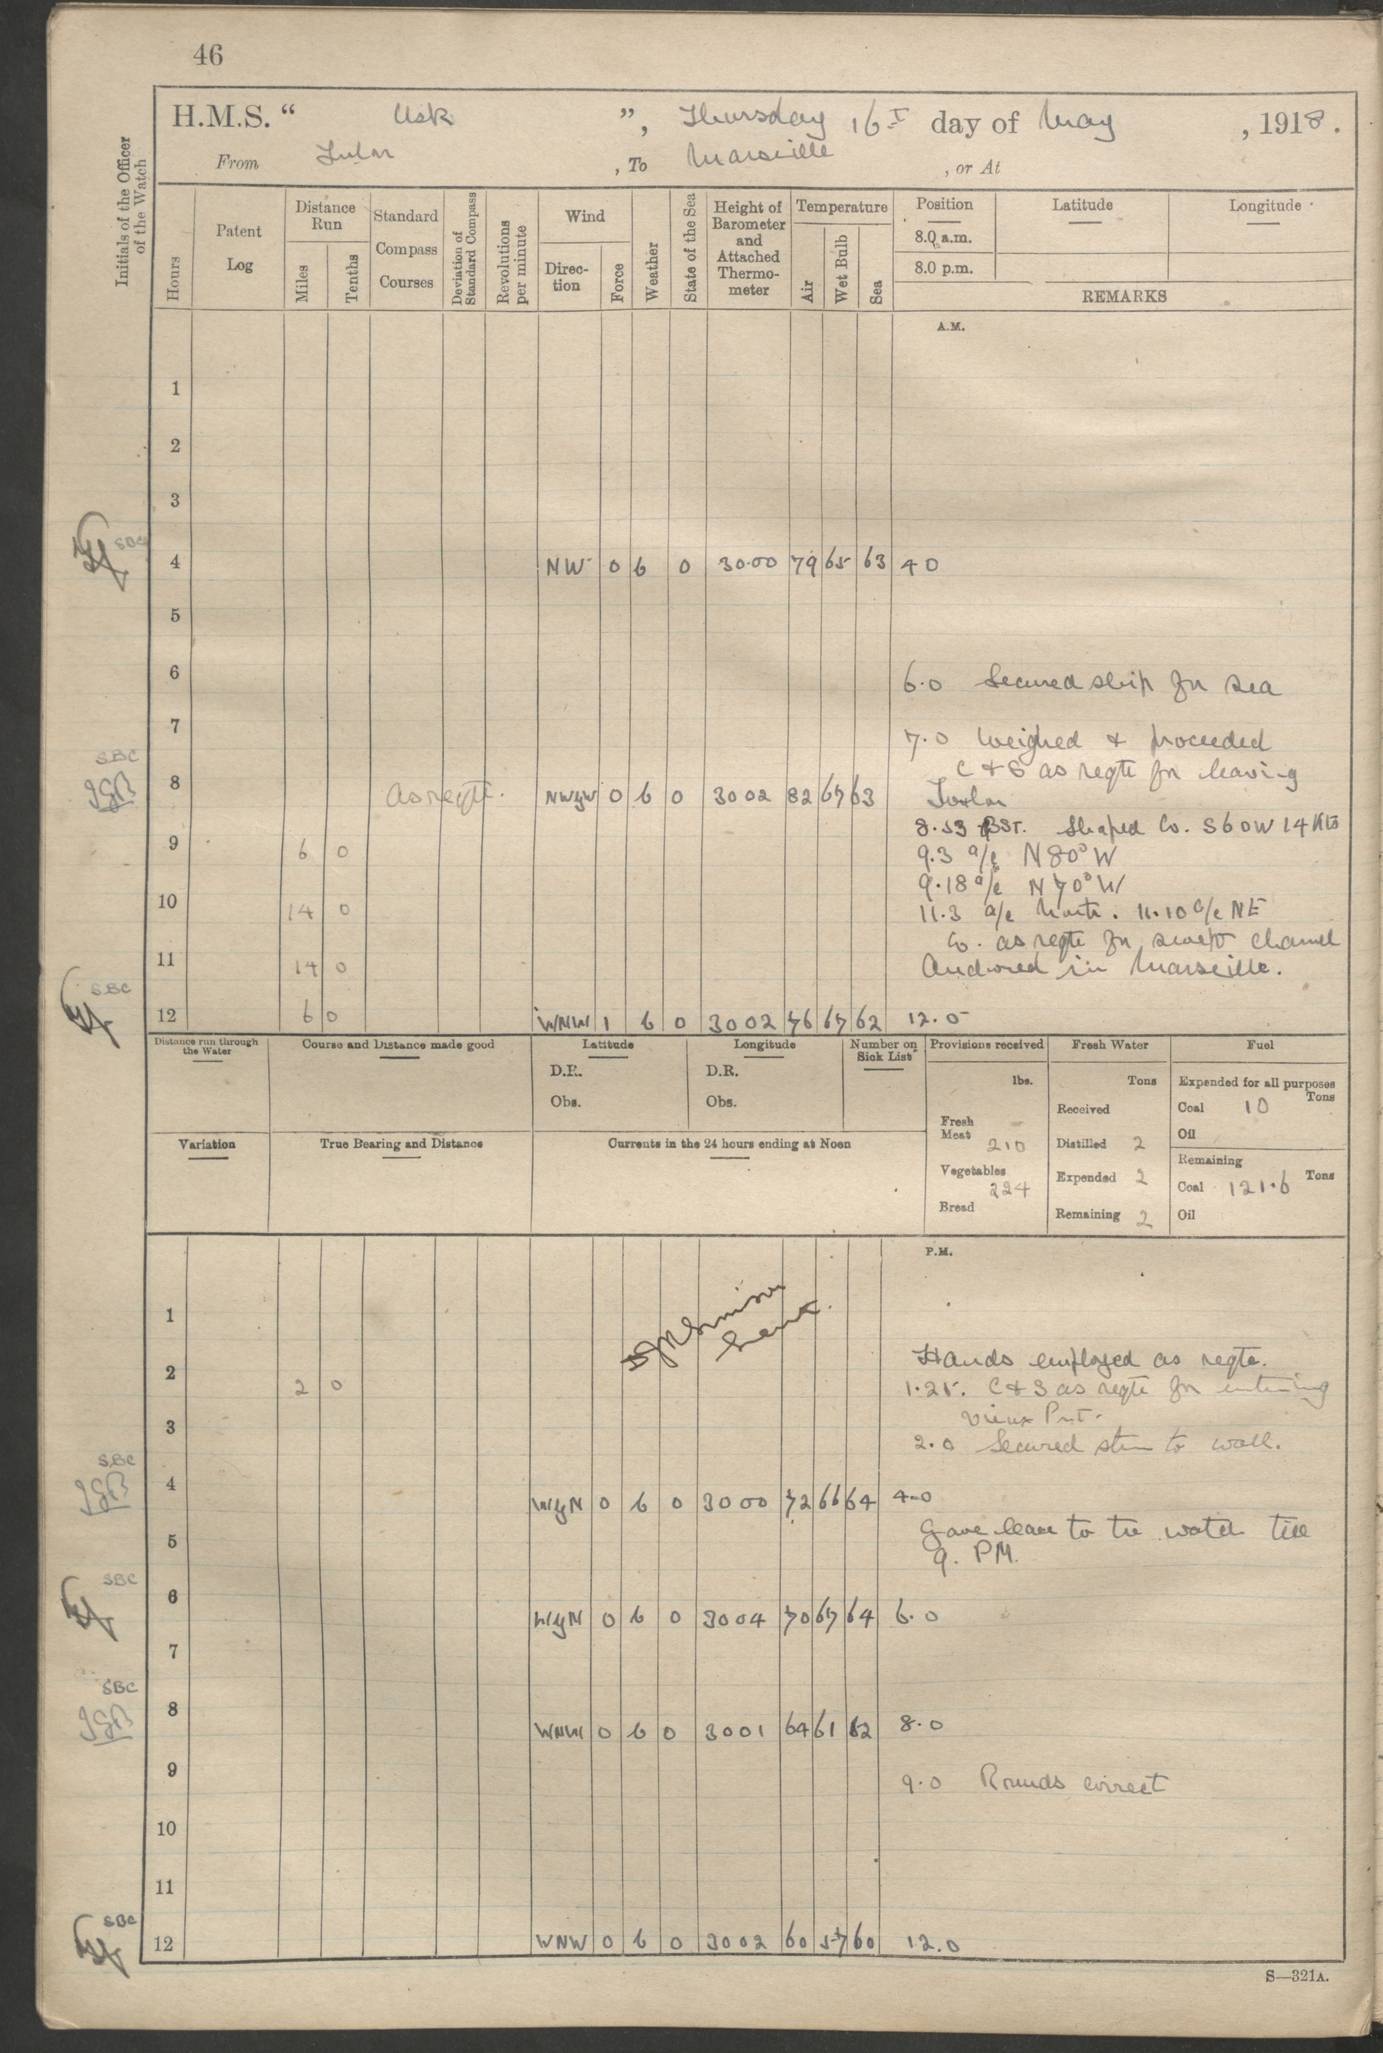 46
H.M.S. “ Usk ”, Thursday 16th day of May , 1918.
From Tulon , To Marseille , or At
Initials of the Officer of the Watch
Hours
Patent Log
Distance Run
Miles
Tenths
Standard Compass Courses
Deviation of Standard Compass
Revolutions per minute
Wind
Direc-tion
Force
Weather
State of the Sea
Height of Barometer and Attached Thermo-meter
Temperature
Air
Wet Bulb
Sea
Position Latitude Longitude
8.0 a.m.
8.0 p.m.
REMARKS
A.M.
1
2
3
SBC
4 NW 0 b 0 30.00 79 65 63 4 0
5
6
6.0 Secured ship for sea
7
7.0 Weighed & proceeded
C & S as reqte for leaving
SBC
JGB
8 as reqte. NWyW 0 b 0 30 02 82 67 63 Toulon
8.53 BST. Shaped Co. S60W 14 Kts
9 6 0
9.3 a/c N 80° W
9.18 a/c N 70° W
10 14 0
11.3 a/c North. 11.10 a/c NE
Co. as reqte for swept channel
11 14 0
Anchored in Marseille.
SBC
12 6 0 WNW 1 b 0 30 02 76 67 62 12.0
Distance run through the Water
Course and Distance made good
Latitude
D.R.
Obs.
Longitude
D.R.
Obs.
Number on Sick List
Provisions received
lbs.
Fresh Meat 210
Vegetables 224
Bread
Fresh Water
Tons
Received
Distilled 2
Expended 2
Remaining 2
Fuel
Expended for all purposes
Tons
Coal 10
Oil
Remaining
Tons
Coal 121.6
Oil
Variation
True Bearing and Distance
Currents in the 24 hours ending at Noon
P.M.
1
Hands employed as reqte.
2 2 0
1.25. C & S as reqte for entering
Vieux Port.
3
2.0 Secured stern to wall.
SBC
JGB
4 WyN 0 b 0 30 00 72 66 64 4-0
Gave leave to the watch till
5
9. PM.
SBC
6 WyN 0 b 0 30 04 70 67 64 6.0
7
SBC
JGB
8 WNW 0 b 0 30 01 64 61 62 8.0
9
9.0 Rounds correct
10
11
SBC
12 WNW 0 b 0 30 02 60 57 60 12.0
S—321A.